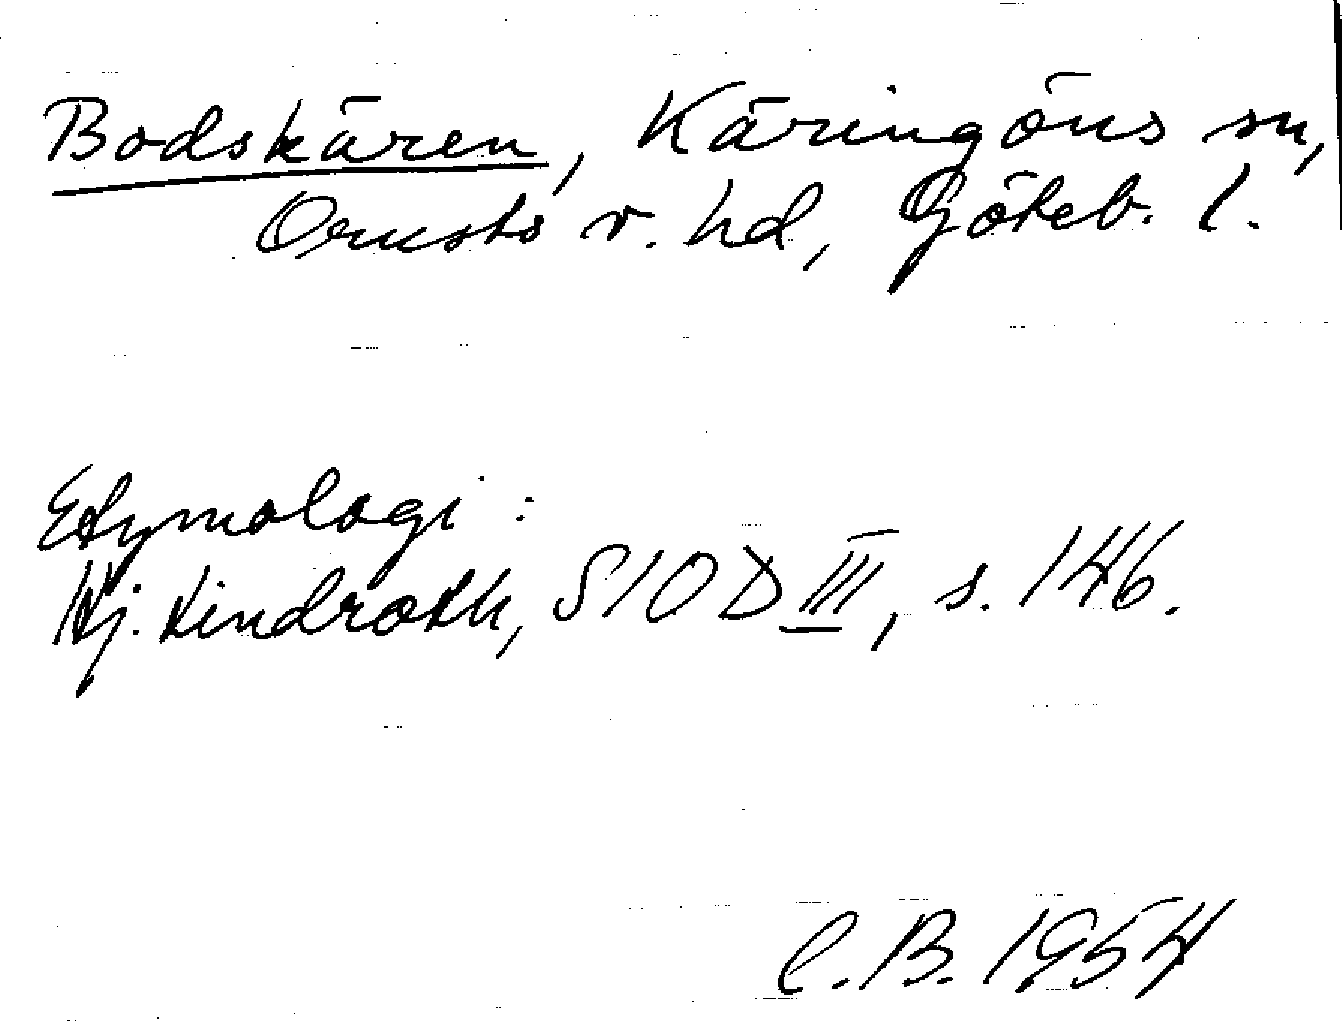 Bodskären, Käringöns sn,
Orusts v. hd, Göteb. l.
Etymologi:
Hj. Lindroth, SIOD III, s. 146.
C.B. 1954